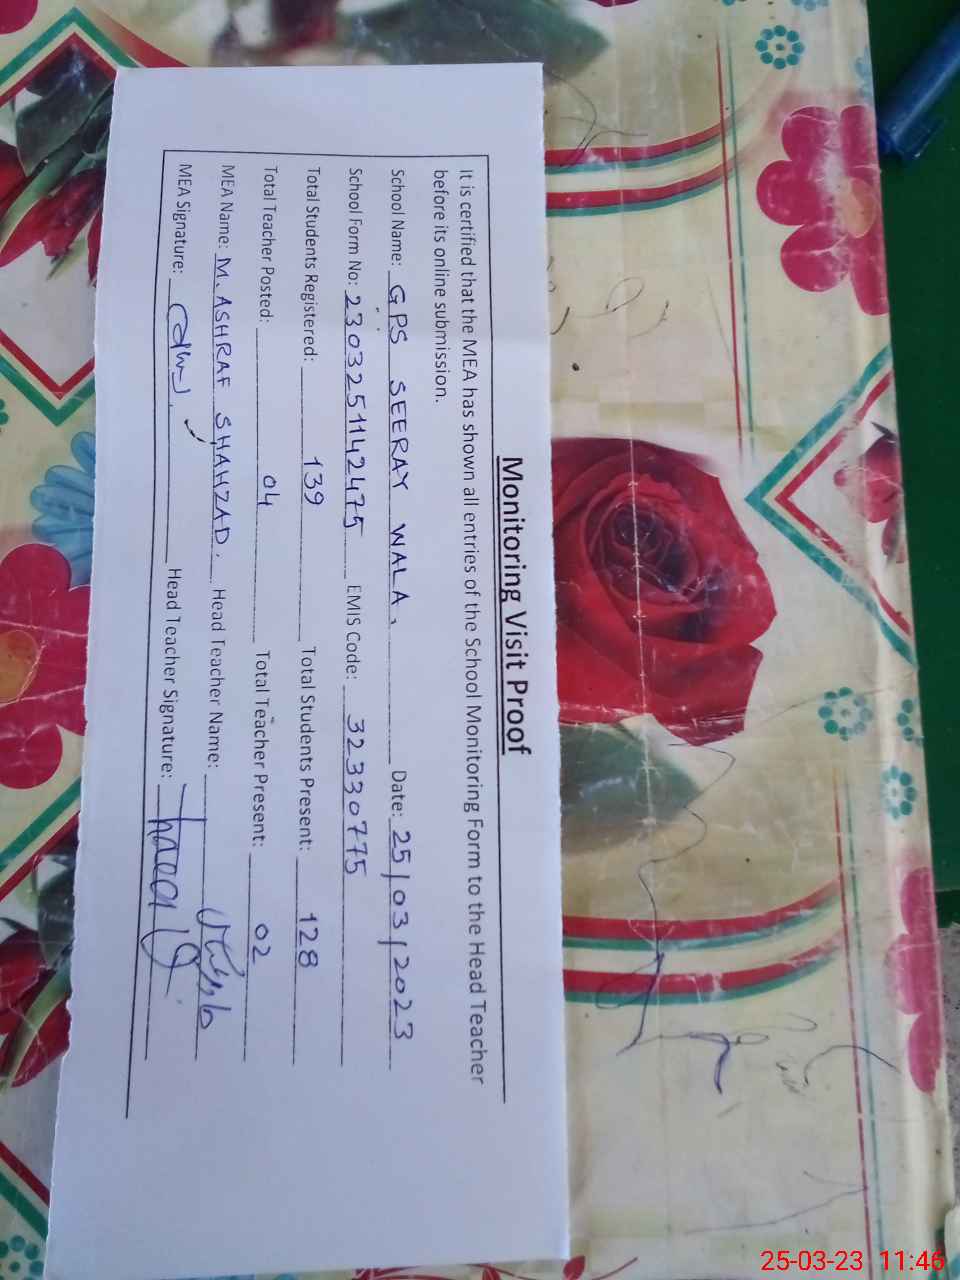 Monitoring Visit Proof
It is certified that the MEA has shown all entries of the School Monitoring Form to the Head Teacher
before its online submission.
School Name: GPS SEERAY WALA. Date: 25/03/2023
School Form No: 2303251142475 EMIS Code: 32330775
Total Students Registered: 139 Total Students Present: 128
Total Teacher Posted: 04 Total Teacher Present: 02
MEA Name: M. ASHRAF SHAHZAD. Head Teacher Name:
MEA Signature: Head Teacher Signature:
25-03-23 11:46